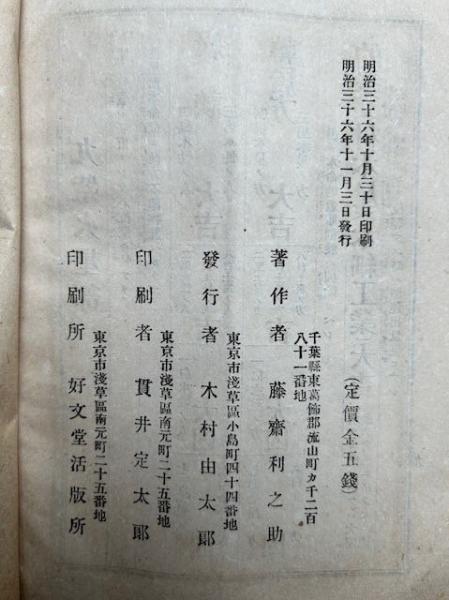 明治三十六年十月三十日印刷
明治三十六年十一月三日發行
(定價金五錢)
千葉縣東葛飾郡流山町カ千二百
八十一番地
著作者 藤齋利之助
東京市淺草區小島町四十四番地
發行者 木村由太郞
東京市淺草區南元町二十五番地
印刷者 貫井定太郞
東京市淺草區南元町二十五番地
印刷所 好文堂活版所